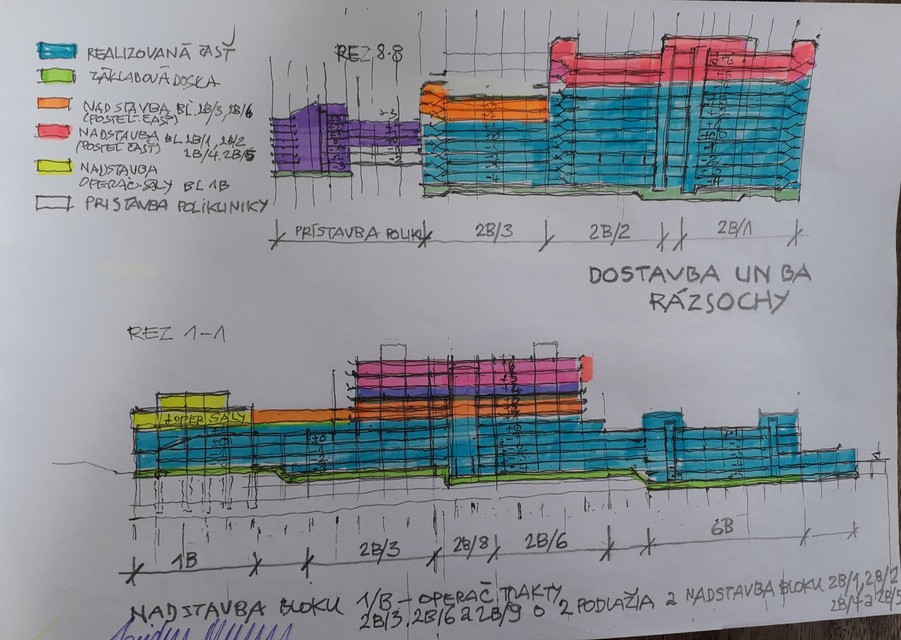 REALIZOVANÁ ČASŤ
ZÁKLADOVÁ DOSKA
NADSTAVBA BL. 2B/3, 2B/6
(POSTEL. ČASŤ)
NADSTAVBA BL 2B/1, 2B/2
(POSTEL ČASŤ) 2B/4. 2B/5
NADSTAVBA
OPERAČ. SÁLY BL 1B
PRISTAVBA POLIKLINIKY
REZ 8-8
PRÍSTAVBA POLIK
2B/3
2B/2
2B/1
DOSTAVBA UN BA
RÁZSOCHY
REZ 1-1
OPER SÁLY
1B
2B/3
2B/8
2B/6
6B
NADSTAVBA BLOKU 1/B - OPERAČ TRAKTY
2B/3, 2B/6 a 2B/9 O 2 PODLAŽIA a NADSTAVBA BLOKU 2B/1, 2B/2
2B/4 a 2B/5